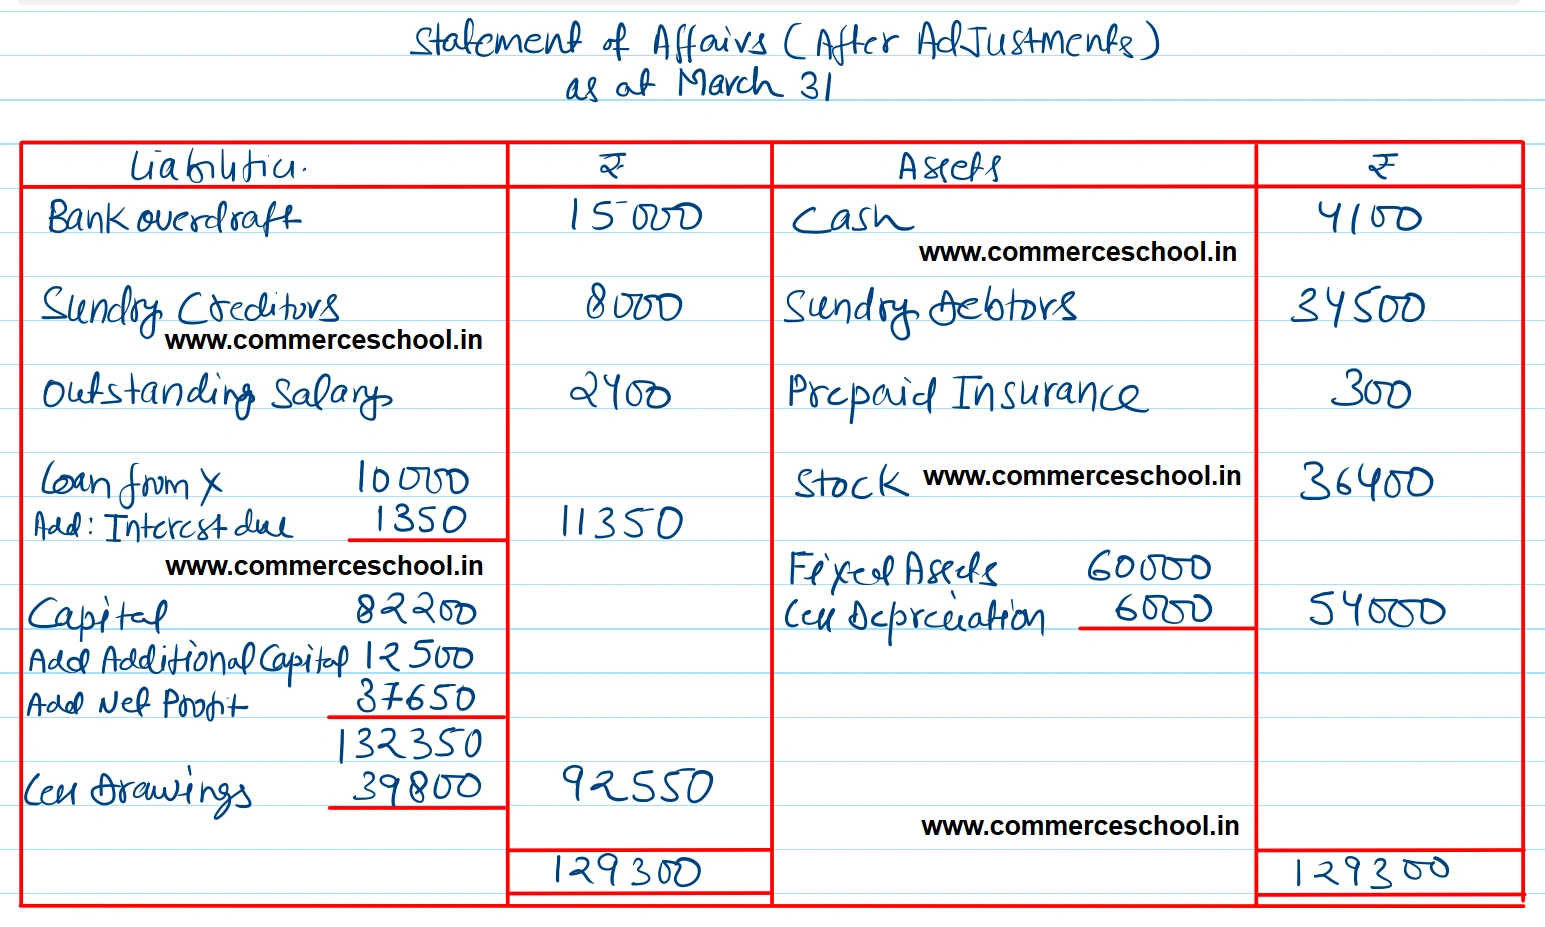 Statement of Affairs (After Adjustments)
as at March 31
Liabilities. ₹ Assets ₹
Bank overdraft 15000 Cash 4100
www.commerceschool.in
Sundry Creditors 8000 Sundry Debtors 34500
www.commerceschool.in
Outstanding Salary 2400 Prepaid Insurance 300
Loan from X 10000 Stock www.commerceschool.in 36400
Add: Interest due 1350 11350
www.commerceschool.in Fixed Assets 60000
Capital 82200 Less Depreciation 6000 54000
Add Additional Capital 12500
Add Net Profit 37650
132350
Less Drawings 39800 92550
www.commerceschool.in
129300 129300